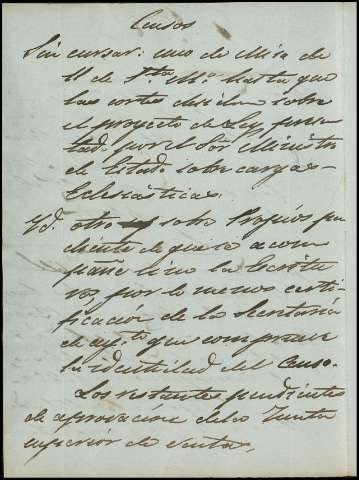 Censos
Sin cursar: uno de Misa de
11 de Sta. Ma. hasta que
las cortes decidan sobre
el proyecto de Ley presen
tado por el Sor Ministro
de Estado sobre cargas
Eclesiásticas.
Yd. otro sobre Propios pen
diente de que se acom
pañe bien la Escritu
ra, por lo menos certi-
ficacion de la Secretaría
de aytto. que compruebe
la identidad del Censo.
Los restantes pendientes
de aprovacion dela Junta
superior de Ventas,